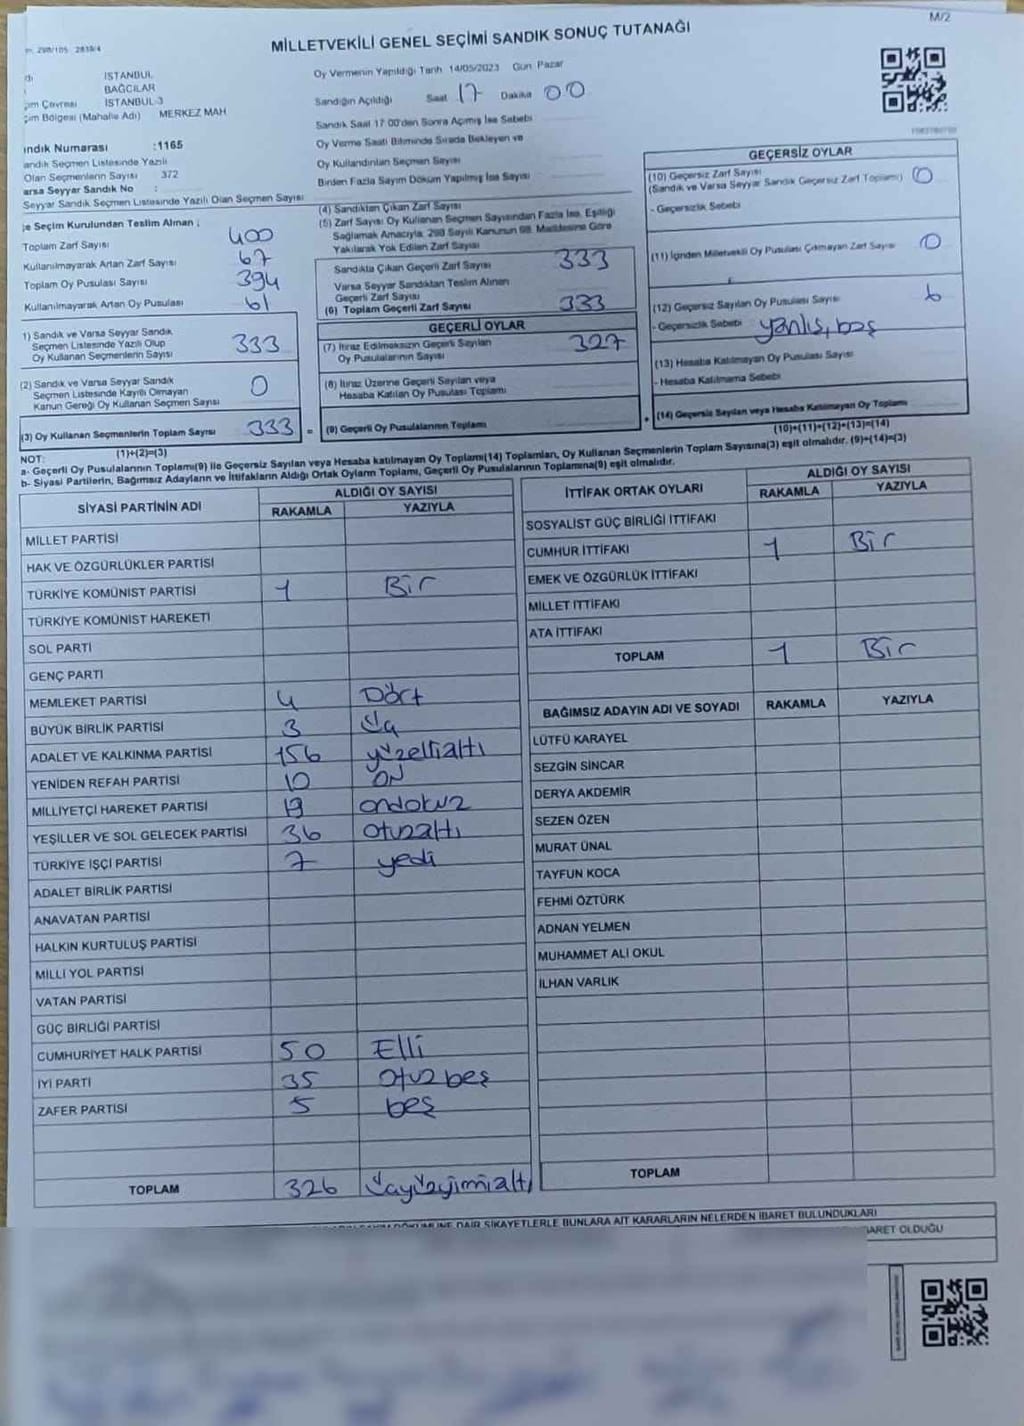 M/2
MİLLETVEKİLİ GENEL SEÇİMİ SANDIK SONUÇ TUTANAĞI
İSTANBUL
BAĞCILAR
İSTANBUL-3
MERKEZ MAH
Oy Vermenin Yapıldığı Tarih 14/05/2023 Gün Pazar
Sandığın Açıldığı Saat 17 Dakika 00
Sandık Saat 17:00'den Sonra Açımış İse Sebebi
Oy Verme Saati Bitiminde Sırada Bekleyen ve
Oy Kullandırılan Seçmen Sayısı
Birden Fazla Sayım Döküm Yapılmış İse Sayısı
ndık Numarası :1165
andık Seçmen Listesinde Yazılı
Olan Seçmenlerin Sayısı 372
arsa Seyyar Sandık No :
Seyyar Sandık Seçmen Listesinde Yazılı Olan Seçmen Sayısı
e Seçim Kurulundan Teslim Alınan ;
Toplam Zarf Sayısı 400
Kullanılmayarak Artan Zarf Sayısı 67
Toplam Oy Pusulası Sayısı 394
Kullanılmayarak Artan Oy Pusulası 61
1) Sandık ve Varsa Seyyar Sandık
Seçmen Listesinde Yazılı Olup
Oy Kullanan Seçmenlerin Sayısı 333
(2) Sandık ve Varsa Seyyar Sandık
Seçmen Listesinde Kayıtlı Olmayan
Kanun Gereği Oy Kullanan Seçmen Sayısı 0
(3) Oy Kullanan Seçmenlerin Toplam Sayısı 333 =
(1)+(2)=(3)
(4) Sandıktan Çıkan Zarf Sayısı
(5) Zarf Sayısı Oy Kullanan Seçmen Sayısından Fazla İse, Eşitliği
Sağlamak Amacıyla, 298 Sayılı Kanunun 98. Maddesine Göre
Yakılarak Yok Edilen Zarf Sayısı
Sandıkta Çıkan Geçerli Zarf Sayısı 333
Varsa Seyyar Sandıktan Teslim Alınan
Geçerli Zarf Sayısı
(6) Toplam Geçerli Zarf Sayısı 333
GEÇERLİ OYLAR
(7) İtiraz Edilmeksizin Geçerli Sayılan
Oy Pusulalarının Sayısı 327
(8) İtiraz Üzerine Geçerli Sayılan veya
Hesaba Katılan Oy Pusulası Toplamı
(9) Geçerli Oy Pusulalarının Toplamı +
GEÇERSİZ OYLAR
(10) Geçersiz Zarf Sayısı
(Sandık ve Varsa Seyyar Sandık Geçersiz Zarf Toplamı) 0
- Geçersizlik Sebebi
(11) İçinden Milletvekili Oy Pusulası Çıkmayan Zarf Sayısı 0
(12) Geçersiz Sayılan Oy Pusulası Sayısı 6
- Geçersizlik Sebebi yanlış, boş
(13) Hesaba Katılmayan Oy Pusulası Sayısı
- Hesaba Katılmama Sebebi
(14) Geçersiz Sayılan veya Hesaba Katılmayan Oy Toplamı
(10)+(11)+(12)+(13)=(14)
NOT:
a- Geçerli Oy Pusulalarının Toplamı(9) ile Geçersiz Sayılan veya Hesaba katılmayan Oy Toplamı(14) Toplamları, Oy Kullanan Seçmenlerin Toplam Sayısına(3) eşit olmalıdır. (9)+(14)=(3)
b- Siyasi Partilerin, Bağımsız Adayların ve İttifakların Aldığı Ortak Oyların Toplamı, Geçerli Oy Pusulalarının Toplamına(9) eşit olmalıdır.
SİYASİ PARTİNİN ADI ALDIĞI OY SAYISI
RAKAMLA YAZIYLA
MİLLET PARTİSİ
HAK VE ÖZGÜRLÜKLER PARTİSİ
TÜRKİYE KOMÜNİST PARTİSİ 1 Bir
TÜRKİYE KOMÜNİST HAREKETİ
SOL PARTİ
GENÇ PARTİ
MEMLEKET PARTİSİ 4 Dört
BÜYÜK BİRLİK PARTİSİ 3 Üç
ADALET VE KALKINMA PARTİSİ 156 yüzellialtı
YENİDEN REFAH PARTİSİ 10 ON
MİLLİYETÇİ HAREKET PARTİSİ 19 ondokuz
YEŞİLLER VE SOL GELECEK PARTİSİ 36 otuzaltı
TÜRKİYE İŞÇİ PARTİSİ 7 yedi
ADALET BİRLİK PARTİSİ
ANAVATAN PARTİSİ
HALKIN KURTULUŞ PARTİSİ
MİLLİ YOL PARTİSİ
VATAN PARTİSİ
GÜÇ BİRLİĞİ PARTİSİ
CUMHURİYET HALK PARTİSİ 50 Elli
İYİ PARTİ 35 otuzbeş
ZAFER PARTİSİ 5 beş
TOPLAM 326
İTTİFAK ORTAK OYLARI ALDIĞI OY SAYISI
RAKAMLA YAZIYLA
SOSYALİST GÜÇ BİRLİĞİ İTTİFAKI
CUMHUR İTTİFAKI 1 Bir
EMEK VE ÖZGÜRLÜK İTTİFAKI
MİLLET İTTİFAKI
ATA İTTİFAKI
TOPLAM 1 Bir
BAĞIMSIZ ADAYIN ADI VE SOYADI RAKAMLA YAZIYLA
LÜTFÜ KARAYEL
SEZGİN SİNCAR
DERYA AKDEMİR
SEZEN ÖZEN
MURAT ÜNAL
TAYFUN KOCA
FEHMİ ÖZTÜRK
ADNAN YELMEN
MUHAMMET ALİ OKUL
İLHAN VARLIK
TOPLAM
DÖKÜMÜNE DAİR ŞİKAYETLERLE BUNLARA AİT KARARLARIN NELERDEN İBARET BULUNDUKLARI
BARET OLDUĞU